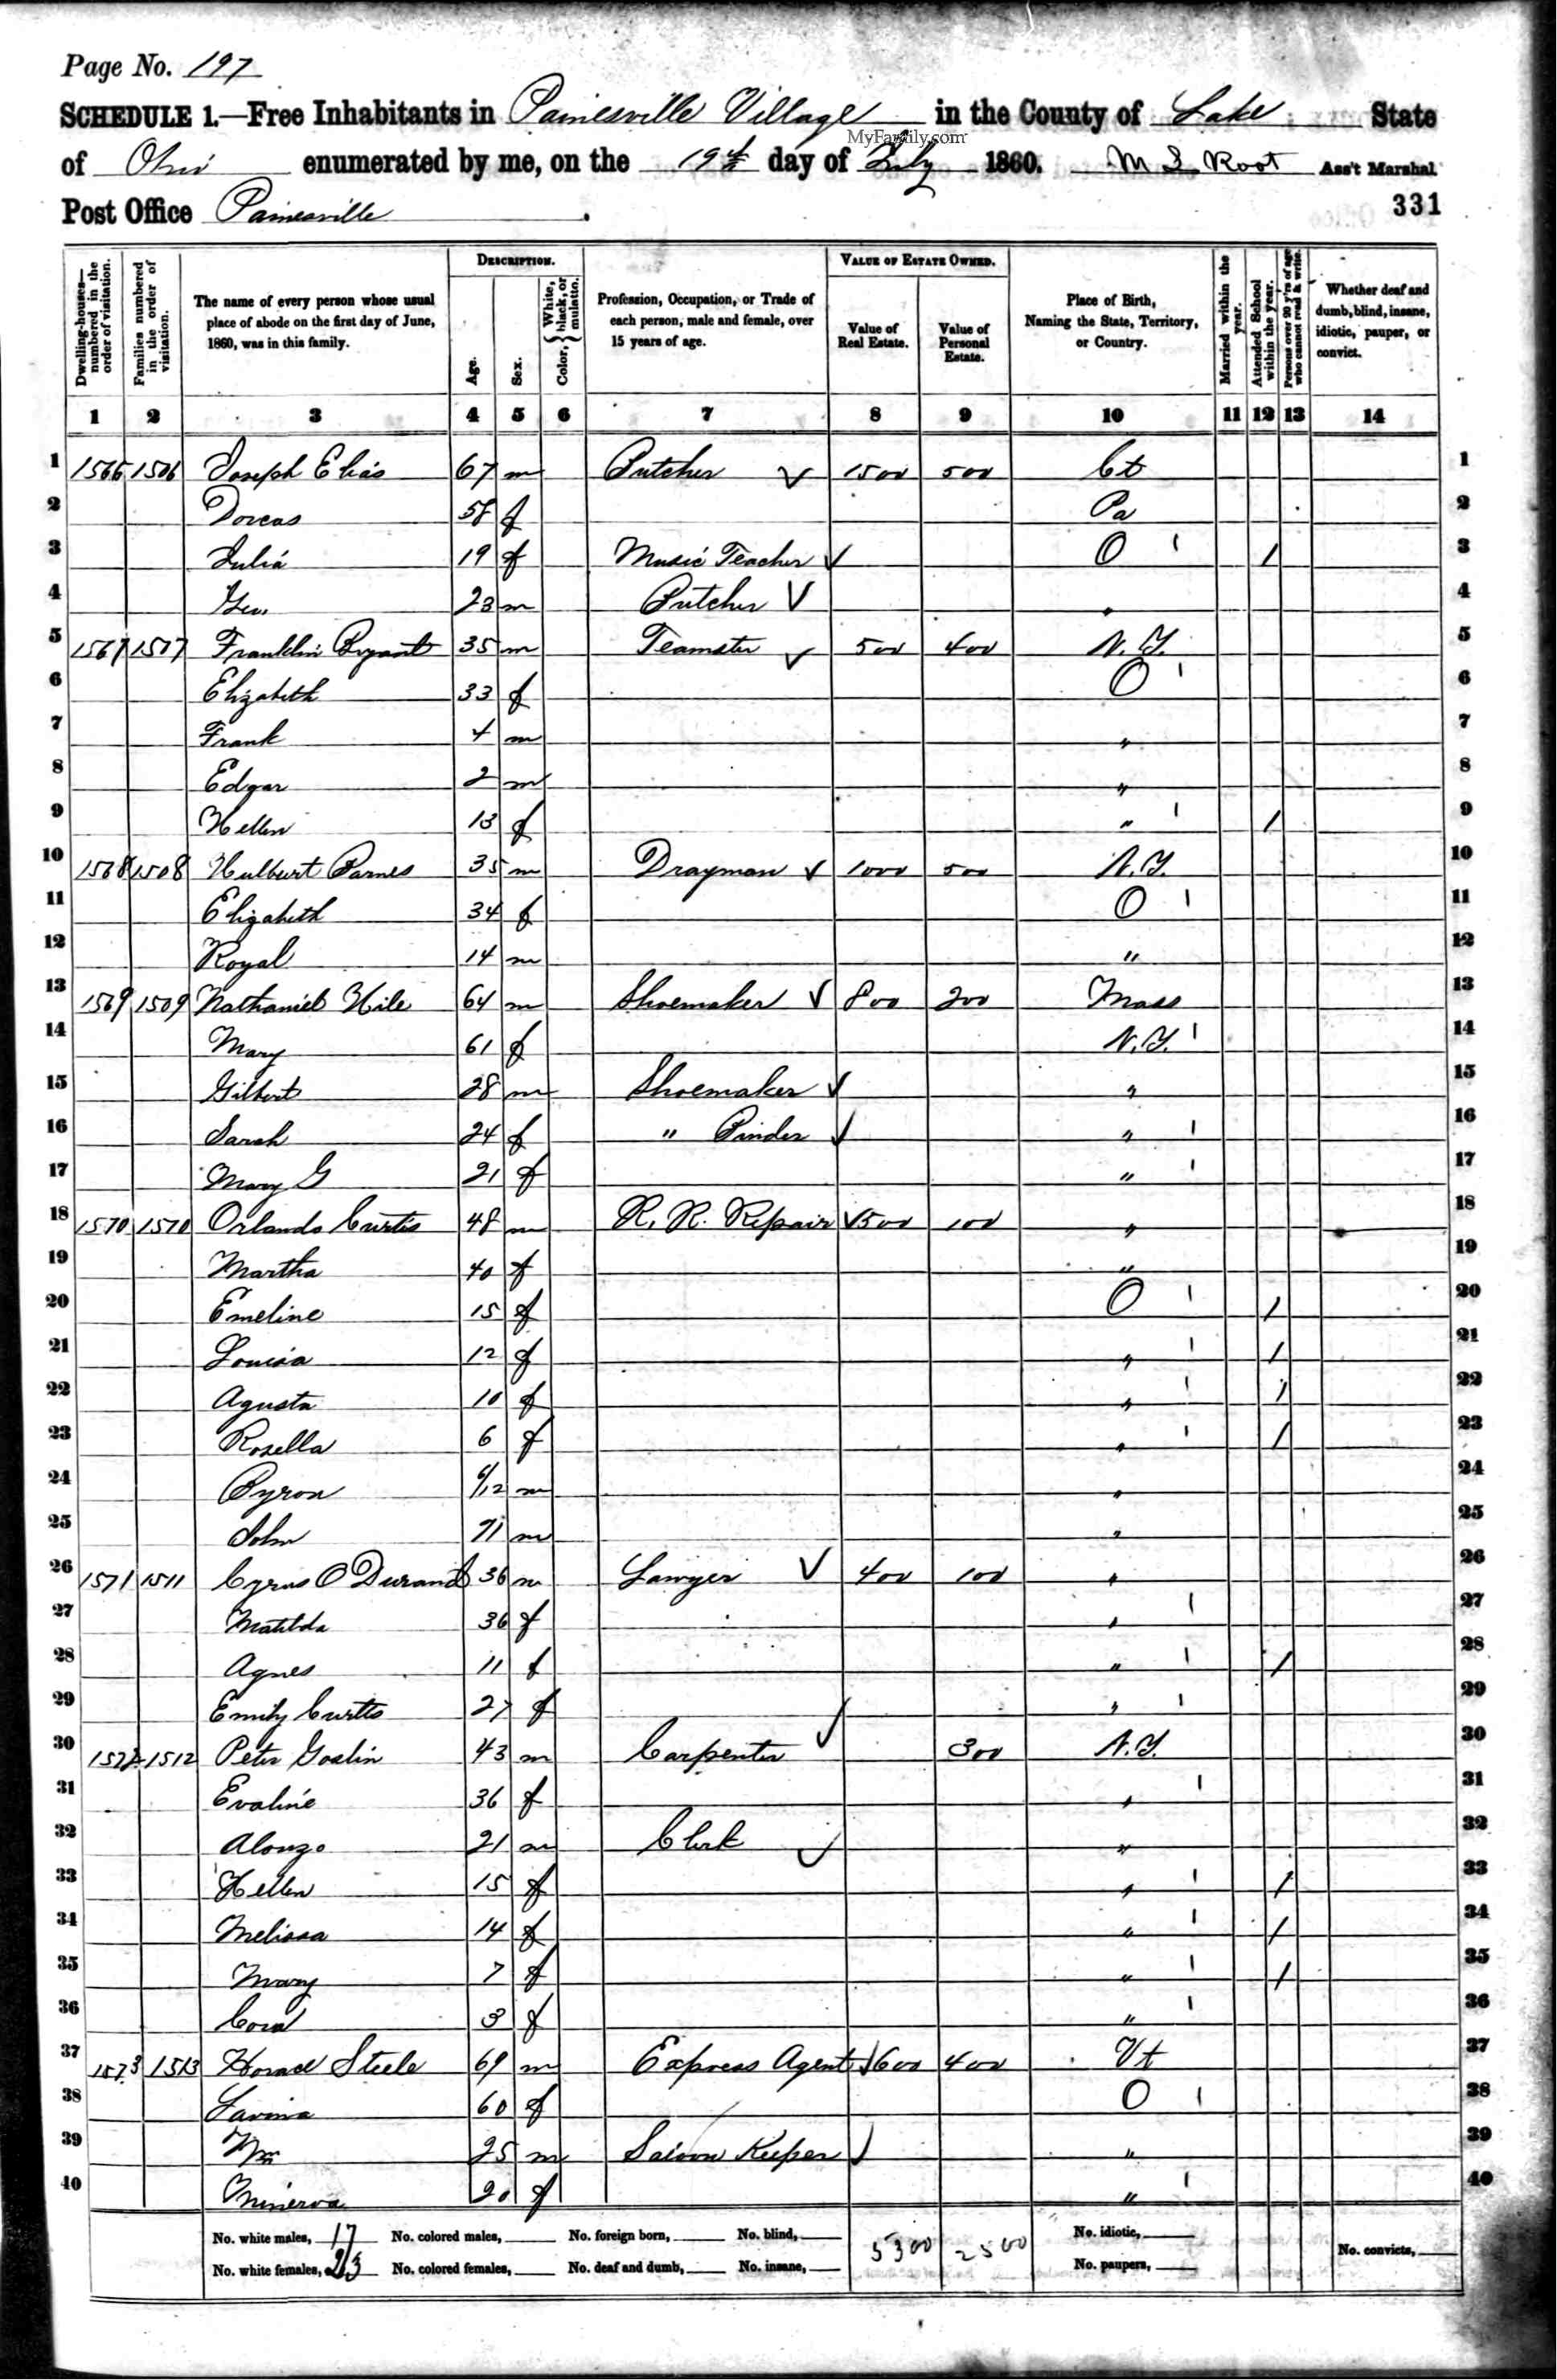 Page No. 197
SCHEDULE 1.—Free Inhabitants in Painesville Village in the County of Lake State
MyFamily.com
of Ohio enumerated by me, on the 19th day of July 1860. M S Root Ass't Marshal
Post Office Painesville . 331
Dwelling-houses—numbered in the order of visitation. Families numbered in the order of visitation. The name of every person whose usual place of abode on the first day of June, 1860, was in this family. DESCRIPTION. Age. Sex. Color, { White, black, or mulatto. Profession, Occupation, or Trade of each person, male and female, over 15 years of age. VALUE OF ESTATE OWNED. Value of Real Estate. Value of Personal Estate. Place of Birth, Naming the State, Territory, or Country. Married within the year. Attended School within the year. Persons over 20 y'rs of age who cannot read & write. Whether deaf and dumb, blind, insane, idiotic, pauper, or convict.
1 2 3 4 5 6 7 8 9 10 11 12 13 14
1 1566 1506 Joseph Elias 67 m Butcher 1500 500 Ct 1
2 Dorcas 58 f Pa 2
3 Julia 19 f Music Teacher O / 3
4 Geo. 23 m Butcher " 4
5 1567 1507 Franklin Bryant 35 m Teamster 500 400 N.Y. 5
6 Elizabeth 33 f O 6
7 Frank 4 m " 7
8 Edgar 2 m " 8
9 Hellen 13 f " / 9
10 1568 1508 Hulburt Barnes 35 m Drayman 1000 500 N.Y. 10
11 Elizabeth 34 f O 11
12 Royal 14 m " 12
13 1569 1509 Nathaniel Hile 64 m Shoemaker 800 200 Mass 13
14 Mary 61 f N.Y. 14
15 Gilbert 28 m Shoemaker " 15
16 Sarah 24 f " Binder " 16
17 Mary G 21 f " 17
18 1570 1510 Orlando Curtis 48 m R. R. Repair 500 100 " 18
19 Martha 40 f " 19
20 Emeline 15 f O / 20
21 Louisa 12 f " / 21
22 Agusta 10 f " / 22
23 Rosella 6 f " / 23
24 Byron 6/12 m " 24
25 John 71 m " 25
26 1571 1511 Cyrus O Durand 36 m Lawyer 400 100 " 26
27 Matilda 36 f " 27
28 Agnes 11 f " / 28
29 Emily Curtis 27 f " 29
30 1572 1512 Peter Goslin 43 m Carpenter 300 N.Y. 30
31 Evaline 36 f " 31
32 Alonzo 21 m Clerk " 32
33 Hellen 15 f " / 33
34 Melissa 14 f " / 34
35 Mary 7 f " / 35
36 Cora 3 f " 36
37 1573 1513 Horace Steele 69 m Express Agent 600 400 Vt 37
38 Lavina 60 f O 38
39 Wm 25 m Saloon Keeper " 39
40 Minerva 20 f " 40
No. white males, 17 No. colored males, No. foreign born, No. blind, 5300 2500 No. idiotic,
No. white females, 23 No. colored females, No. deaf and dumb, No. insane, No. paupers, No. convicts,